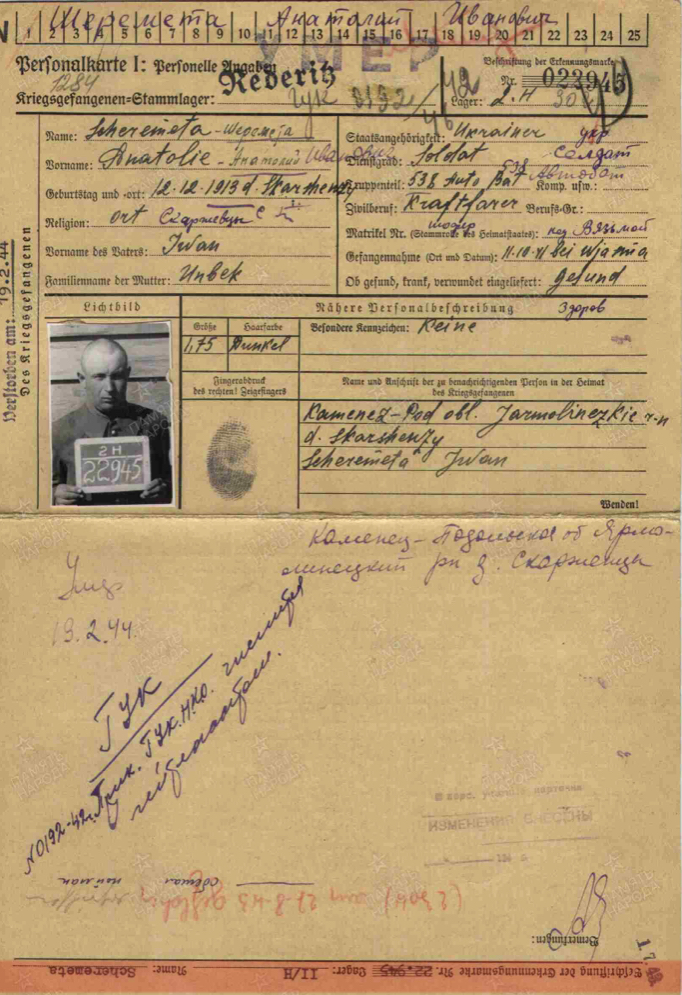 Шеремета Анатолий Иванович
1 2 3 4 5 6 7 8 9 10 11 12 13 14 15 16 17 18 19 20 21 22 23 24 25
УМЕР
Personalkarte I: Personelle Angaben
Beschriftung der Erkennungsmarke
Nr. 022945
1284
Rederitz
Kriegsgefangenen-Stammlager:
ГУК 0192/42
Lager: 2.H
304
Name: Scheremeta - Шеремета
Vorname: Anatolie - Анатолий Иванович
Geburtstag und -ort: 12.12.1913 d. Skarshenzy
Religion: ort Скаржевцы
Vorname des Vaters: Iwan
Familienname der Mutter: Unbek
Staatsangehörigkeit: Ukrainer укр
Dienstgrad: Soldat Солдат
Truppenteil: 538 Auto Bat Komp. usw.:
538 Автобат
Zivilberuf: Kraftfarer Berufs-Gr.:
шофер
Matrikel Nr. (Stammrolle des Heimatstaates): под Вязьмой
Gefangennahme (Ort und Datum): 11.10.41 bei Wjasma
Ob gesund, krank, verwundet eingeliefert: gesund
Здоров
Verstorben am: 19.2.44
Des Kriegsgefangenen
Lichtbild
Nähere Personalbeschreibung
Größe Haarfarbe
1,75 Dunkel
Besondere Kennzeichen: Keine
Fingerabdruck
des rechten! Zeigefingers
Name und Anschrift der zu benachrichtigenden Person in der Heimat
des Kriegsgefangenen
Kamenez-Pod obl. Jarmolinezkie r-n
d. Skarshenzy
Scheremeta Iwan
2H
22945
Wenden!
Каменец-Подольская об Ярмо-
линецкий рн д. Скарженцы
Умер
19.2.44.
ГУК
N0192-42г. Прик. ГУК.Н.К.О.
ИЗМЕНЕНИЯ ВНЕСЕНЫ
194 г.
(2 304) am 21-8-43
Bemerkungen:
Beschriftung der Erkennungsmarke Nr. 22.945 Lager: II/H Name: Scheremeta